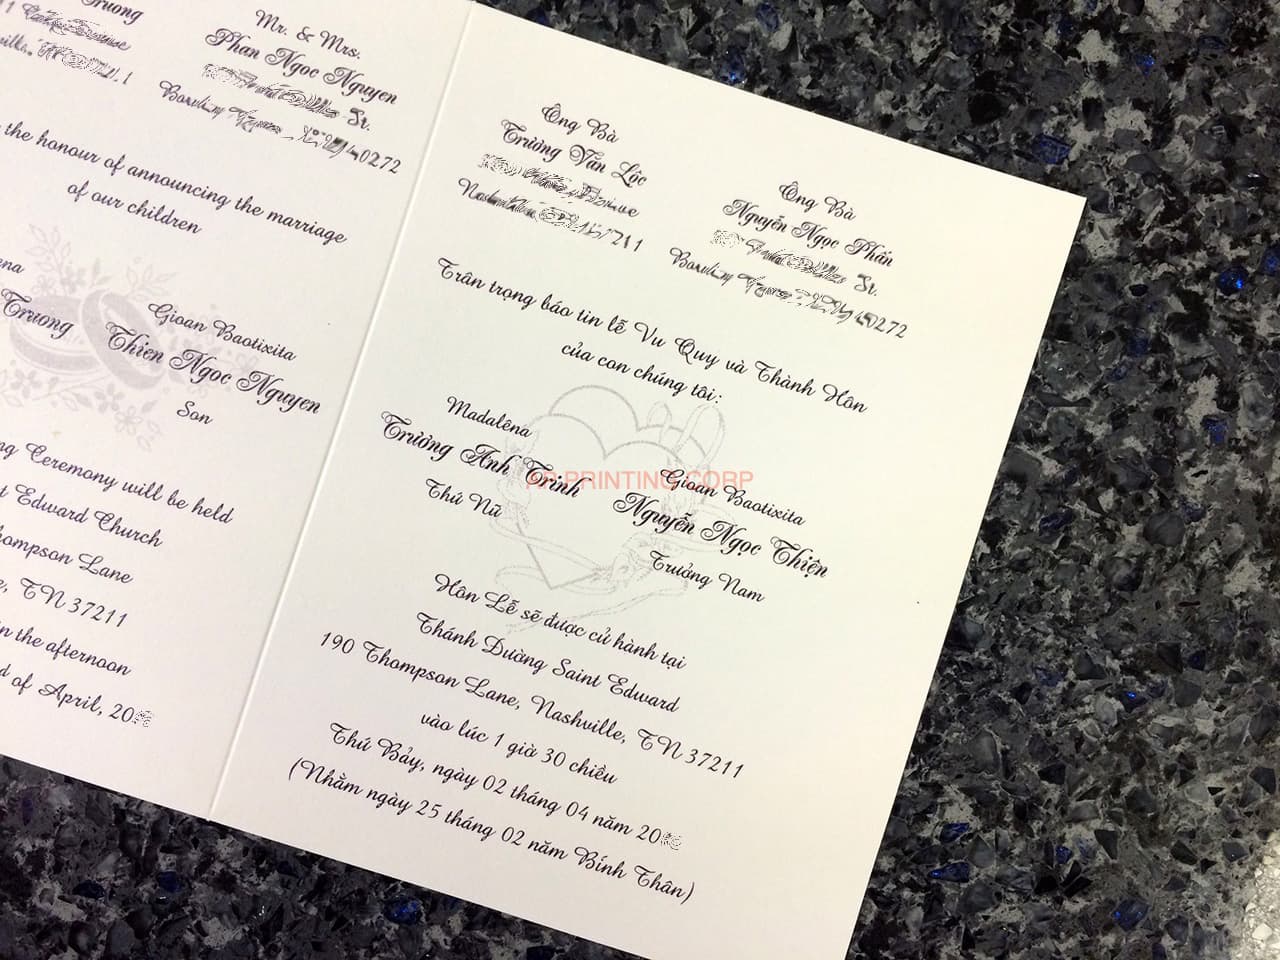 Truong
Mr. & Mrs.
Phan Ngoc Nguyen
St.
the honour of announcing the marriage
of our children
Truong
Gioan Baotixita
Thien Ngoc Nguyen
Son
Ceremony will be held
Edward Church
Lane
TN 37211
in the afternoon
of April, 20
Ông Bà
Trương Văn Lộc
Ông Bà
Nguyễn Ngọc Phấn
St.
Trân trọng báo tin lễ Vu Quy và Thành Hôn
của con chúng tôi:
Madalêna
Trương Anh Trinh
Thứ Nữ
AP PRINTING CORP
Gioan Baotixita
Nguyễn Ngọc Thiện
Trưởng Nam
Hôn Lễ sẽ được cử hành tại
Thánh Đường Saint Edward
190 Thompson Lane, Nashville, TN 37211
vào lúc 1 giờ 30 chiều
Thứ Bảy, ngày 02 tháng 04 năm 20
(Nhằm ngày 25 tháng 02 năm Bính Thân)